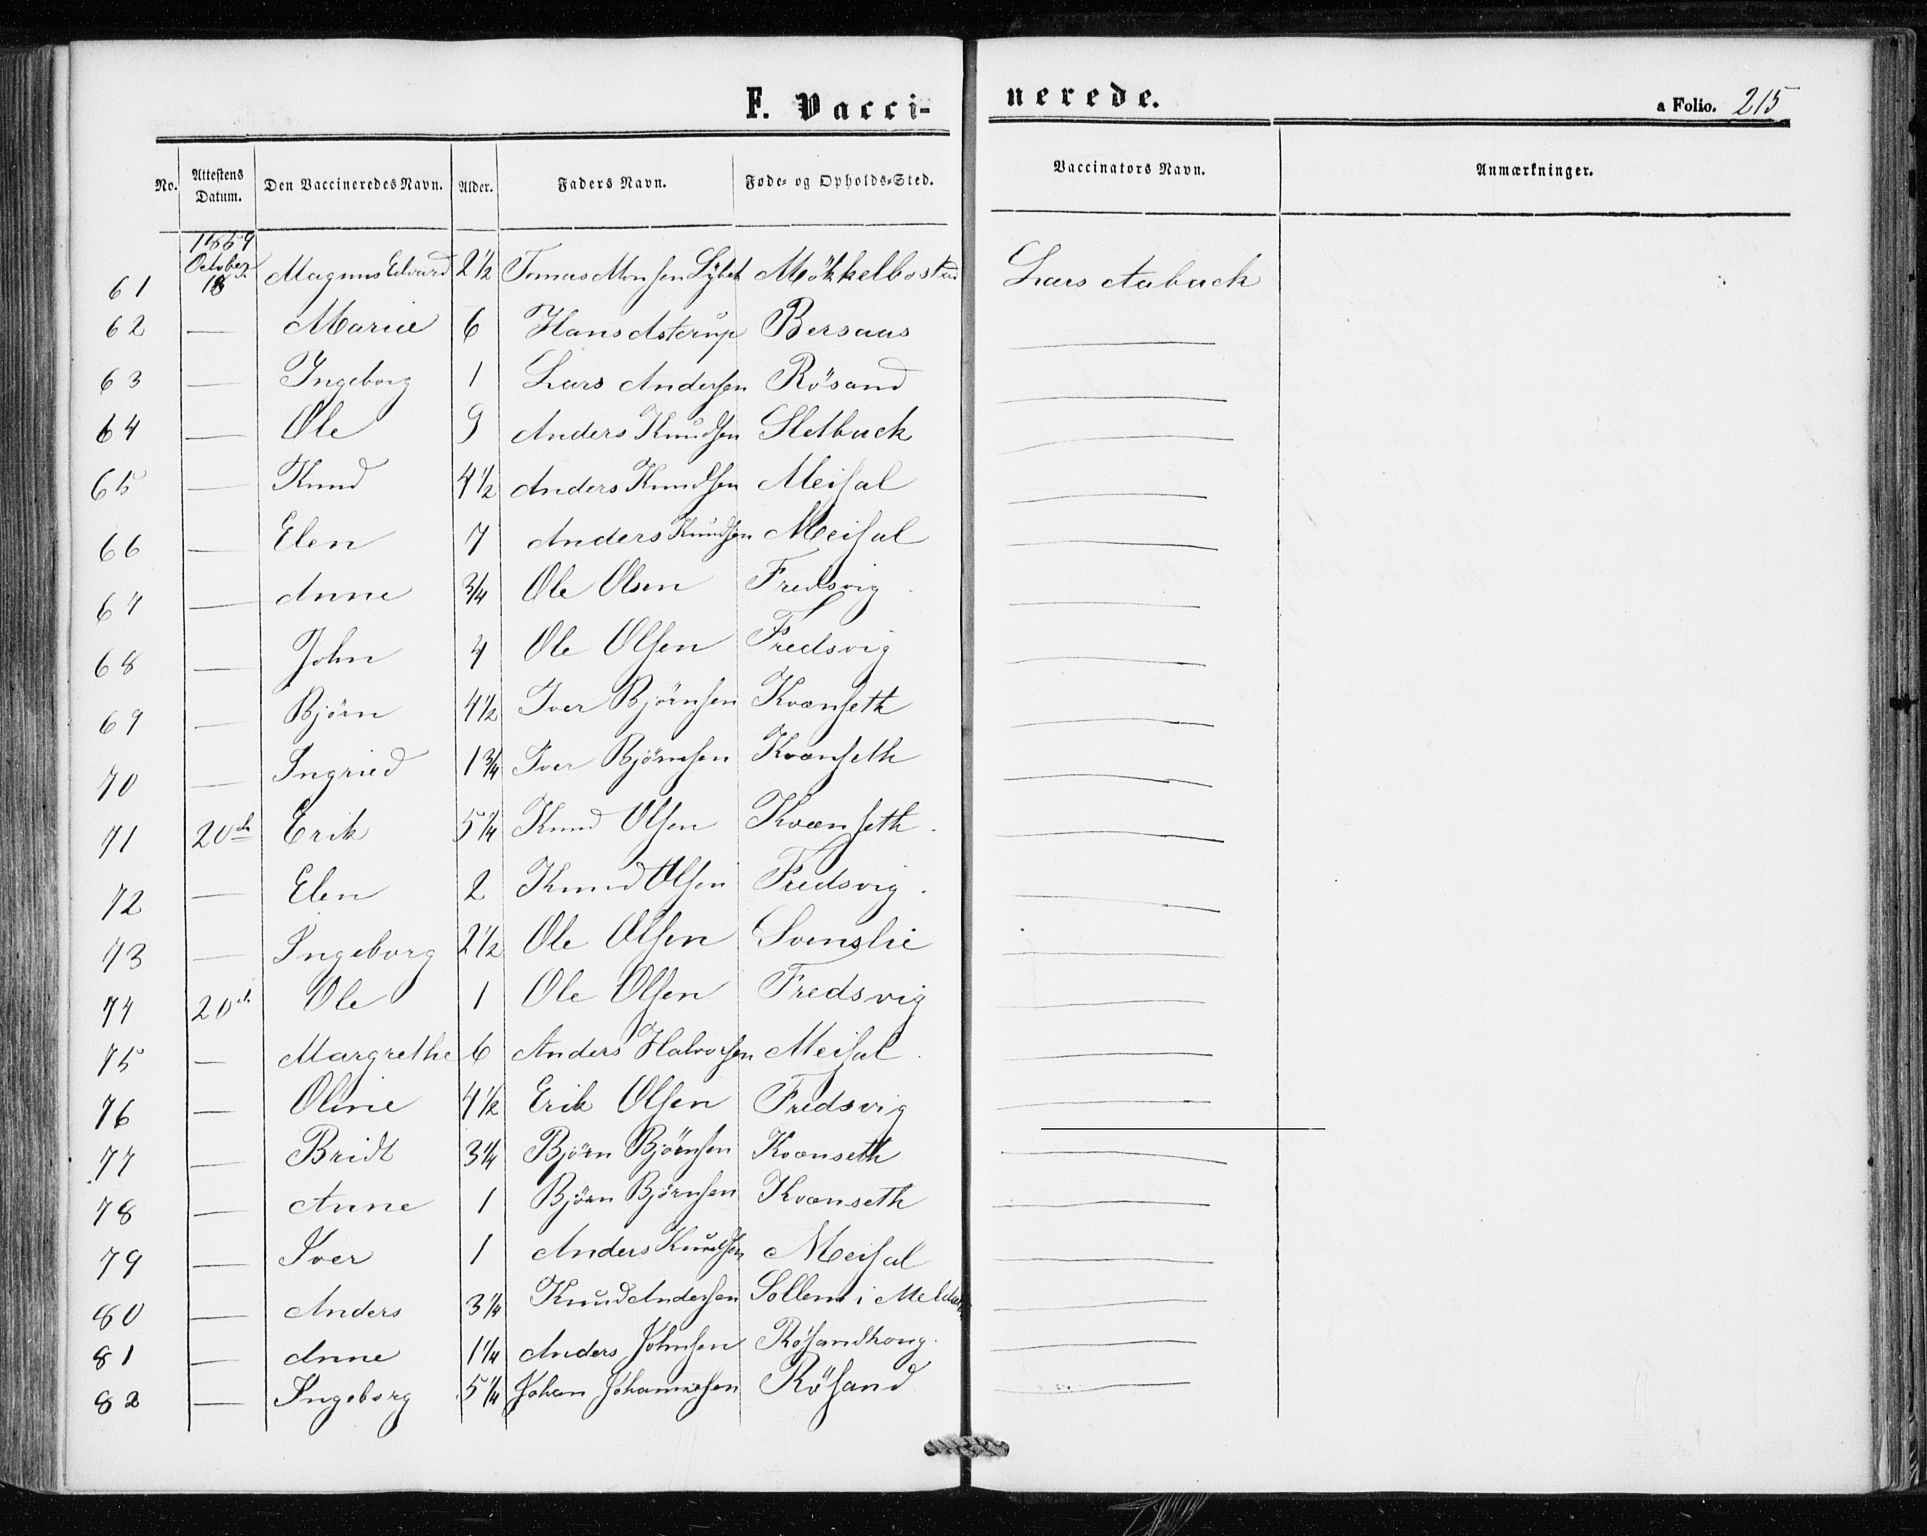 F. Vacci- nerede. a Folio. 215
No. Attestens Datum. Den Vaccineredes Navn. Alder. Faders Navn. Føde- og Opholds-Sted. Vaccinators Navn. Anmærkninger.
61 October 18 Magnus Edvard 2 1/2 Tomas Monsen Mökkelbostad Lars Aaback
62 — Marie 6 Hans Asterup Bersaas —
63 — Ingeborg 1 Lars Andersen Rösand —
64 — Ole 9 Anders Knudsen Sletback —
65 — Knud 4 1/2 Anders Knudsen Meisal —
66 — Elen 7 Anders Knudsen Meisal —
67 — Anne 3/4 Ole Olsen Fredsvig —
68 — John 4 Ole Olsen Fredsvig —
69 — Björn 4 1/2 Iver Björnsen Kvanseth —
70 — Ingried 1 3/4 Iver Björnsen Kvanseth —
71 20de Erik 5 1/4 Knud Olsen Kvanseth —
72 — Elen 2 Knud Olsen Fredsvig —
73 — Ingeborg 2 1/2 Ole Olsen Svenslie —
74 20de Ole 1 Ole Olsen Fredsvig —
75 — Margrethe 6 Anders Halvorsen Meisal —
76 — Oline 4 1/2 Erik Olsen Fredsvig —
77 — Bridt 3 1/4 Björn Björnsen Kvanseth —
78 — Anne 1 Björn Björnsen Kvanseth —
79 — Iver 1 Anders Knudsen Meisal —
80 — Anders 3 1/4 Knud Andersen Sollem i —
81 — Anne 1 1/4 Anders Johnsen Rösandhoug —
82 — Ingeborg 5 1/4 Johan Johannesen Rösand —